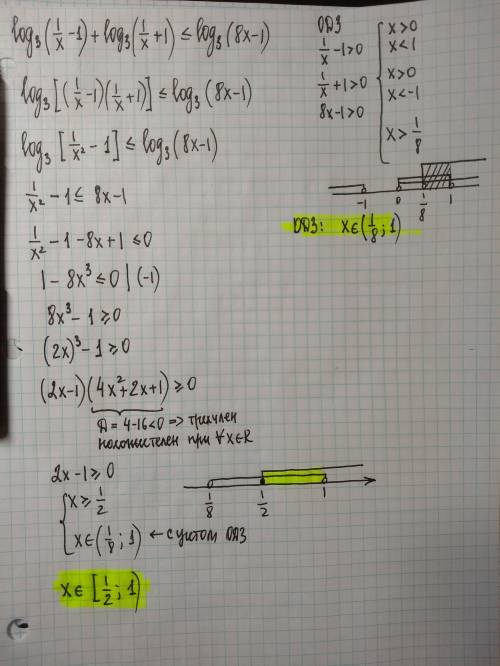 log₃(1/x − 1) + log₃(1/x + 1) ≤ log₃(8x−1)
log₃[(1/x − 1)(1/x + 1)] ≤ log₃(8x−1)
log₃[1/x² − 1] ≤ log₃(8x−1)
1/x² − 1 ≤ 8x−1
1/x² − 1 − 8x + 1 ≤ 0
1 − 8x³ ≤ 0 | (−1)
8x³ − 1 ≥ 0
(2x)³ − 1 ≥ 0
(2x−1)(4x²+2x+1) ≥ 0
Д = 4−16<0 => трехчлен
положителен при ∀x∈R
2x −1 ≥ 0
{ x ≥ 1/2
x∈(1/8; 1) ← с учетом ОДЗ
x∈ [1/2; 1)
ОДЗ
1/x − 1>0
1/x + 1>0
8x−1>0
{ x>0
x<1
x>0
x<−1
x> 1/8
−1 0 1/8 1
ОДЗ: x∈(1/8; 1)
1/8 1/2 1